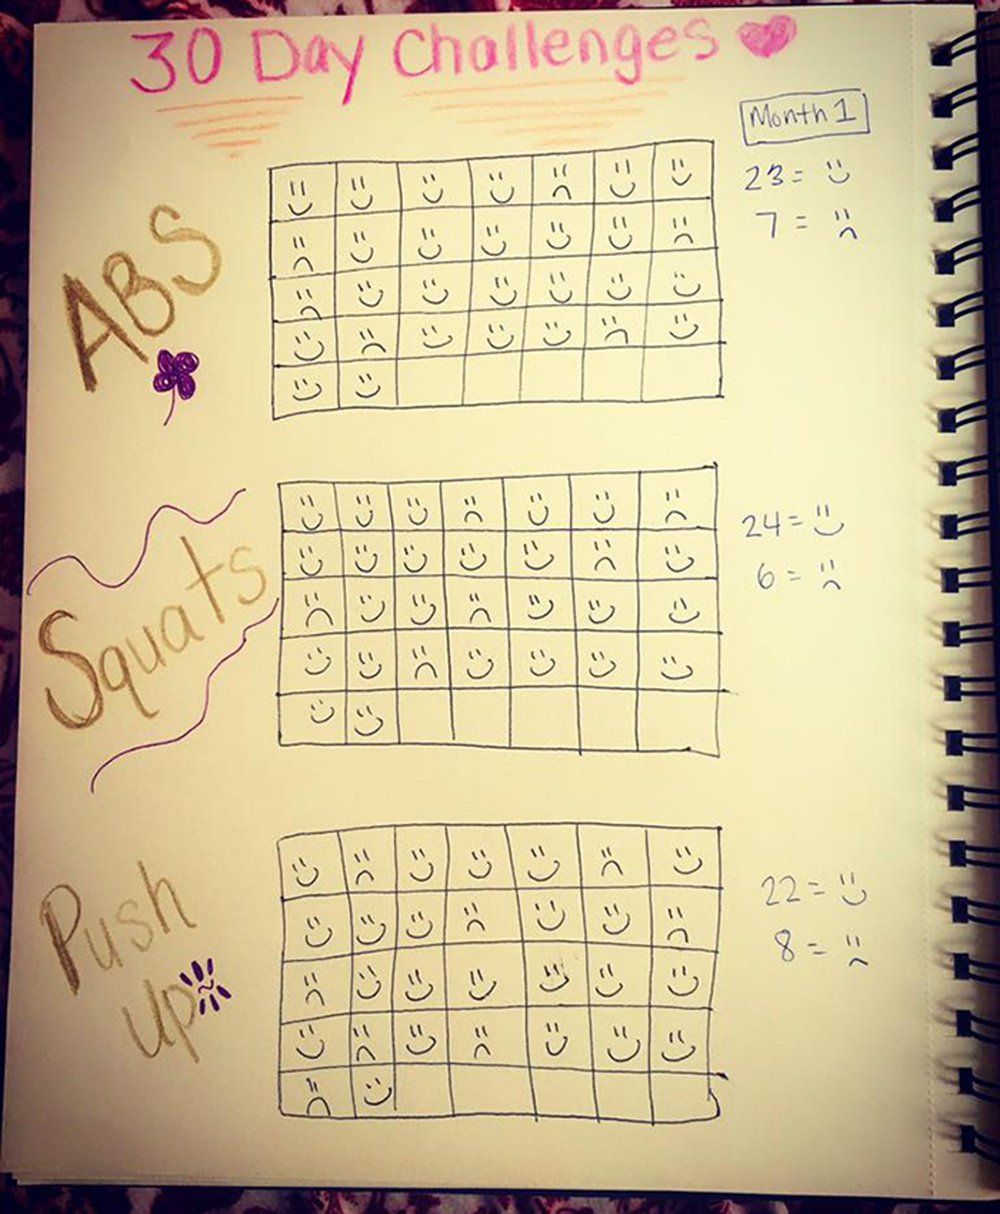 30 Day Challenges
Month 1
ABS
23 =
7 =
Squats
24 =
6 =
Push
Up
22 =
8 =